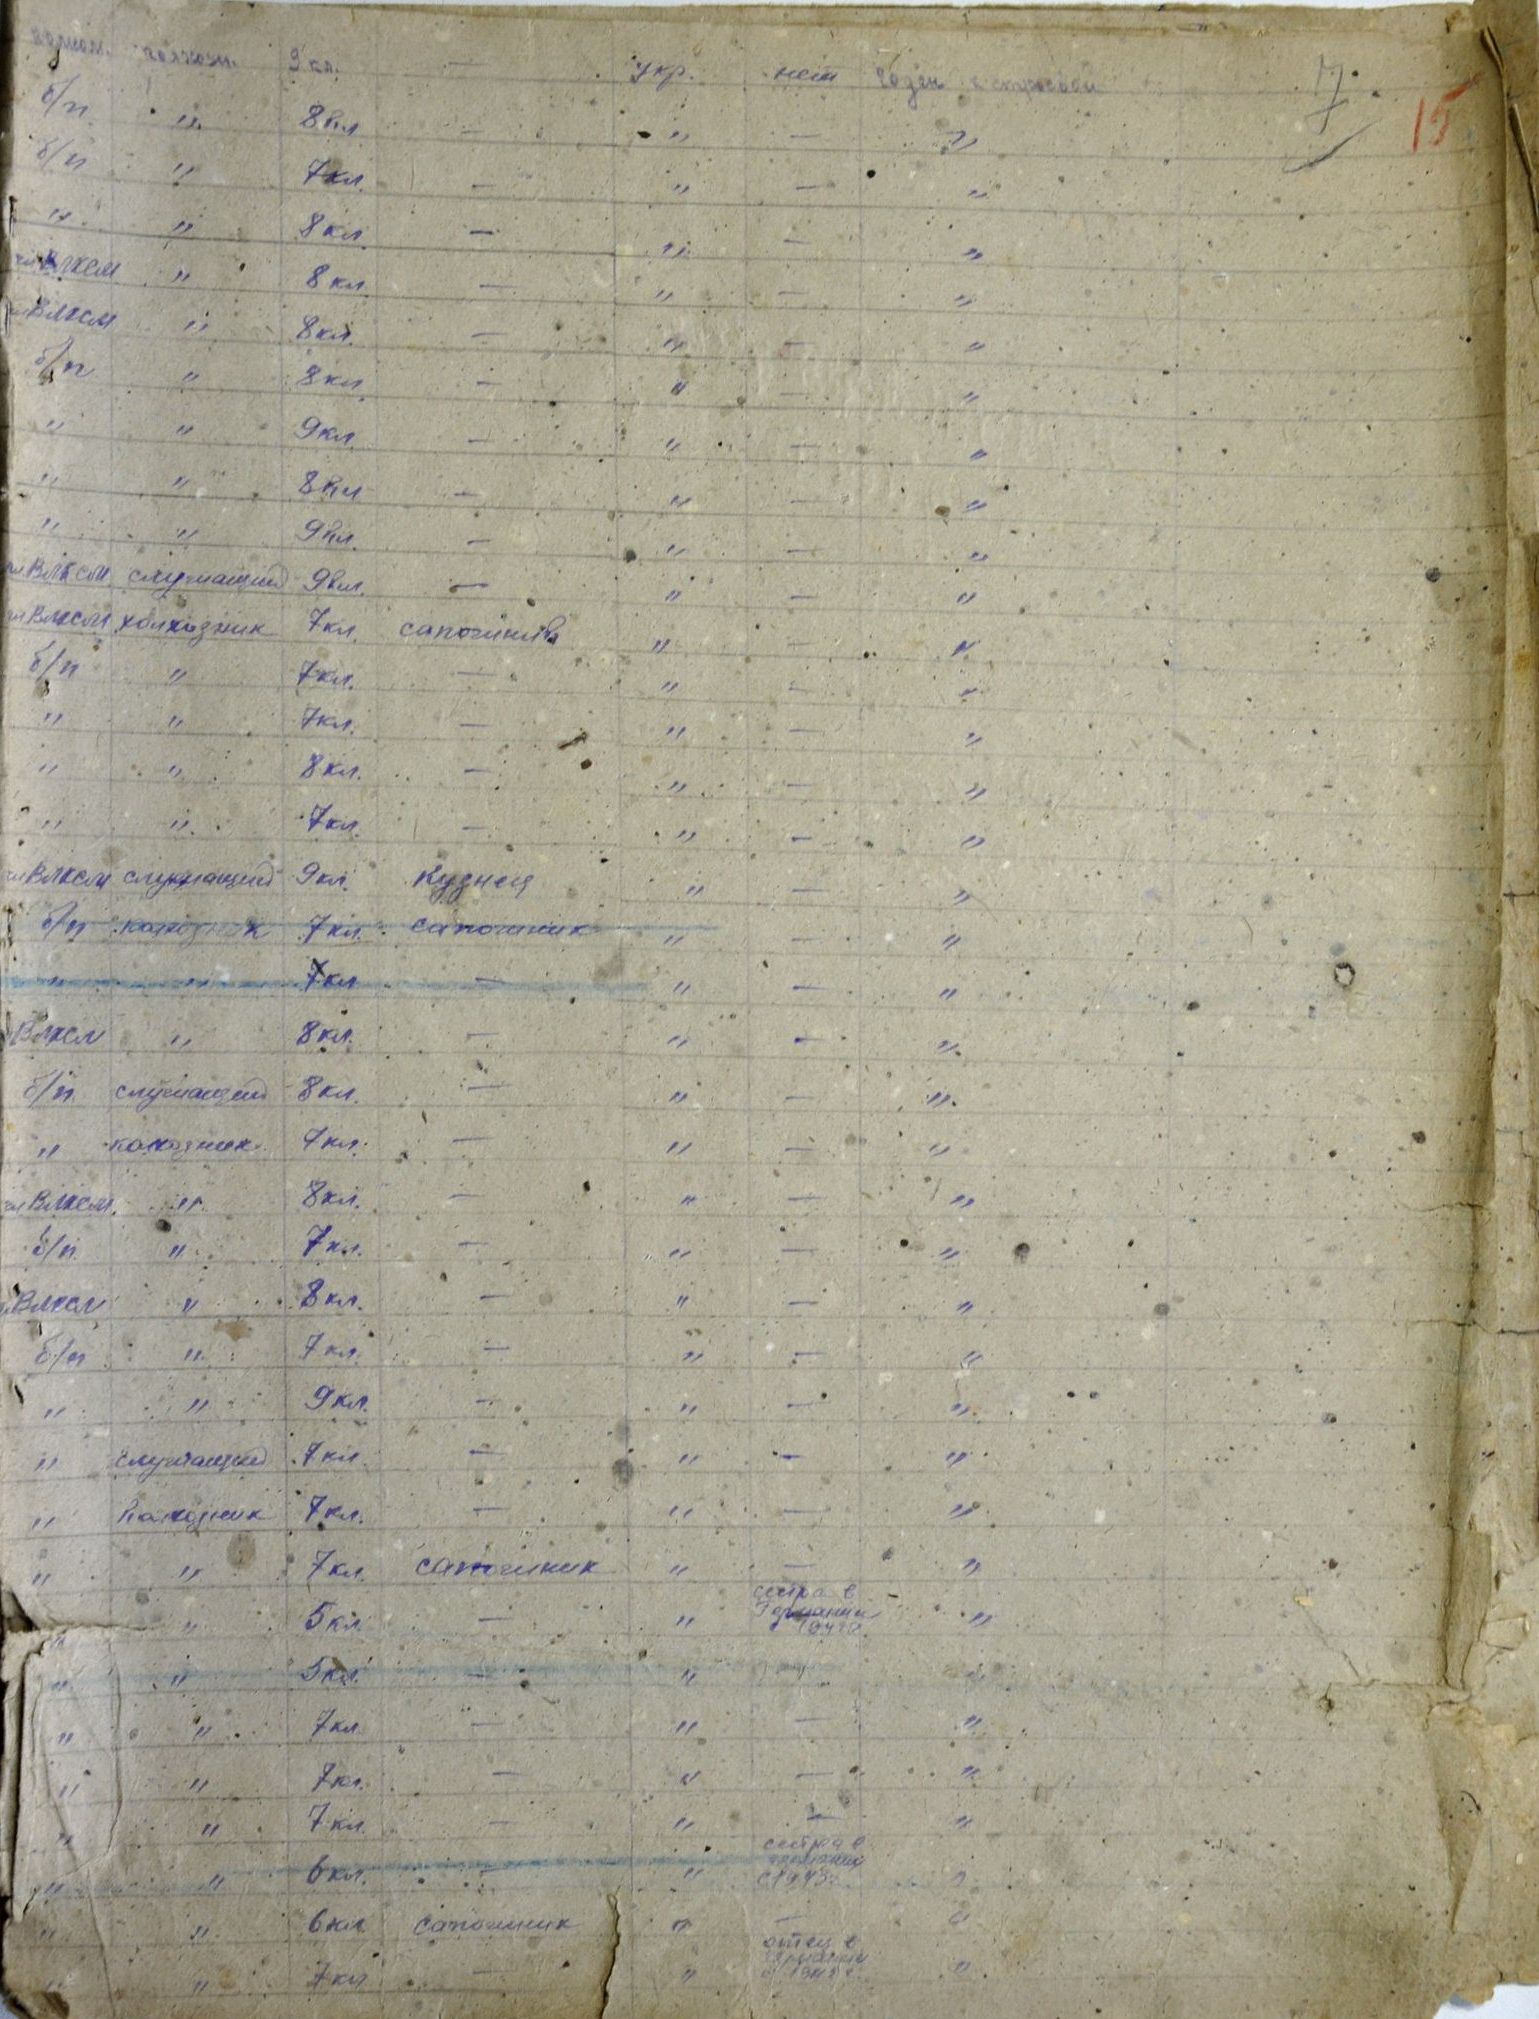 9 кл. — укр. нет Годен к службе 17. 15
б/п " 8 кл — " — "
б/п " 7 кл. — " — "
" " 8 кл — " — "
ВЛКСМ " 8 кл — " — "
ВЛКСМ " 8 кл. — " — "
б/п " 8 кл — " — "
" " 9 кл. — " — "
" " 8 кл — " — "
" " 9 кл. — " — "
чл ВЛКСМ служащий 9 кл. — " — "
чл ВЛКСМ колхозник 7 кл. сапожник " — "
б/п " 7 кл. — " — "
" " 7 кл. — " — "
" " 8 кл. — " — "
" " 7 кл. — " — "
чл ВЛКСМ служащий 9 кл. Кузнец " — "
б/п колхозник 7 кл. сапожник " — "
" " 7 кл — " — "
ВЛКСМ " 8 кл. — " — "
б/п служащий 8 кл. — " — "
" колхозник 7 кл. — " — "
чл ВЛКСМ. " 8 кл. — " — "
б/п " 7 кл. — " — "
ВЛКСМ " 8 кл. — " — "
б/п " 7 кл. — " — "
" " 9 кл. — " — "
" служащий 7 кл. — " — "
" колхозник 7 кл. — " — "
" " 7 кл сапожник " — "
" " 5 кл. — " сестра в Германии "
" " 5 кл. — " "
" " 7 кл — " — "
" " 7 кл. — " — "
" " 7 кл. — " — "
" " 6 кл. — " сестра в Германии с 1943 г. "
" " 6 кл сапожник " — "
" " 7 кл — " отец в Германии "